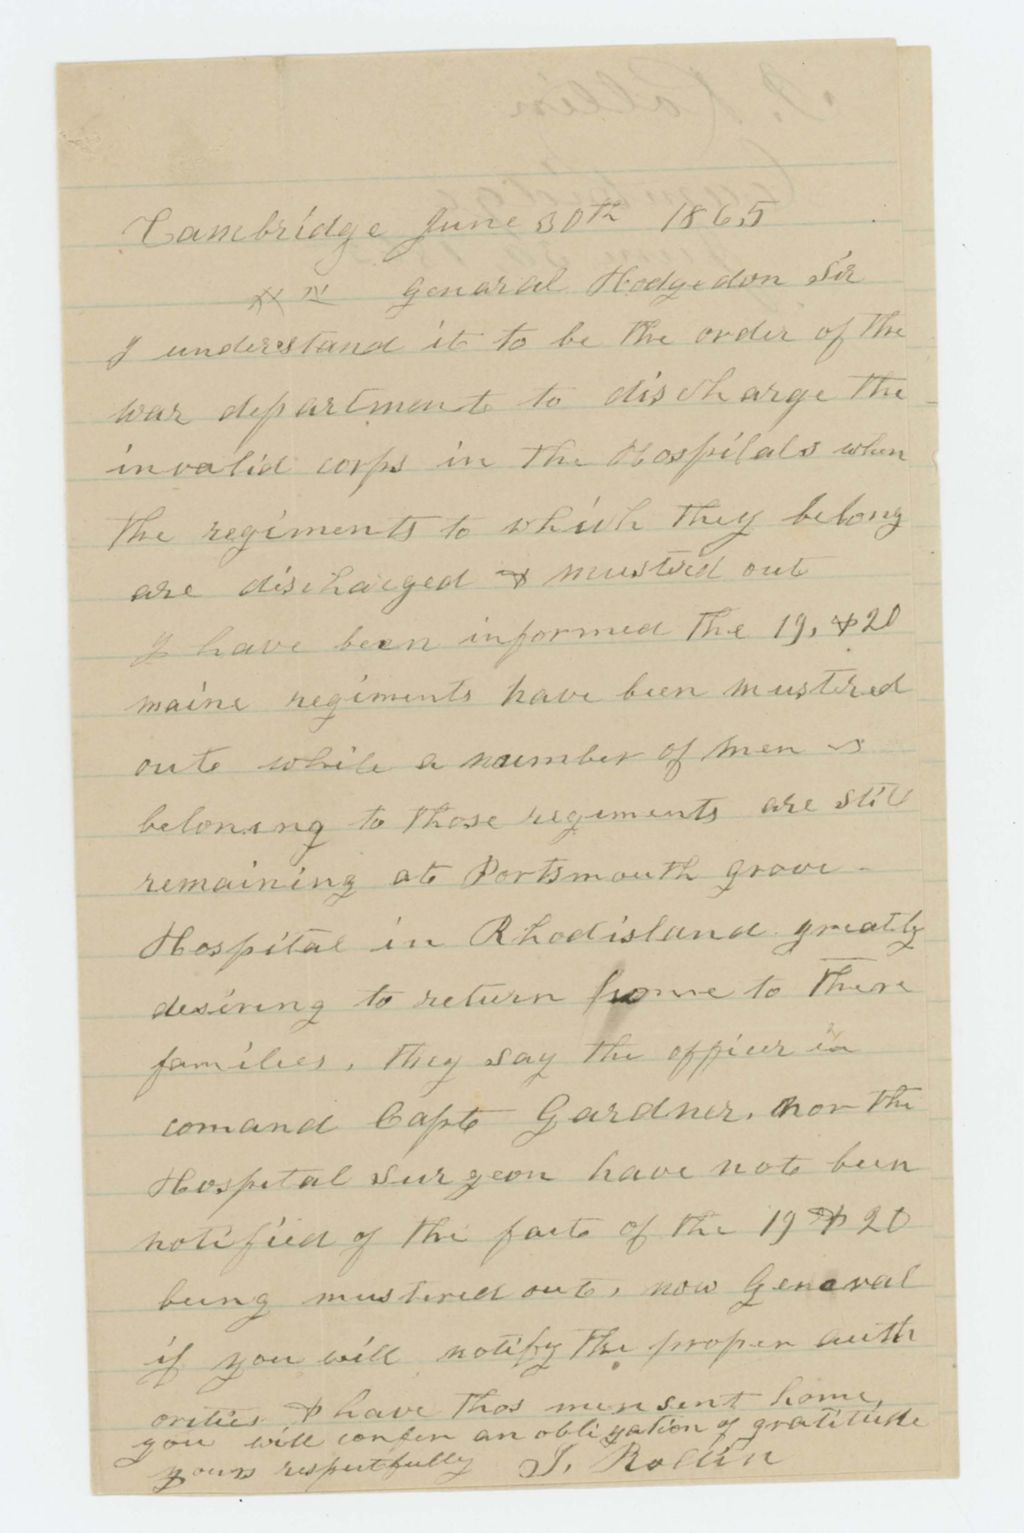 Cambridge June 30th 1865
General Hodgedon Sir
I understand it to be the order of the
war department to discharge the
invalid corps in the Hospitals when
the regiments to which they belong
are discharged & mustred out
I have been informed the 19, & 20
maine regiments have been mustered
out while a number of men
beloning to those regiments are still
remaining at Portsmouth grove
Hospital in Rhodisland greatly
desiring to return home to there
families, they say the officer in
comand Capt Gardner, nor the
Hospital Surgeon have not been
notified of the fact of the 19 & 20
being mustered out, now General
if you will notify the proper auth
orities & have thos men sent home,
you will confer an obligation of gratitude
yours respectfully J. Rollin